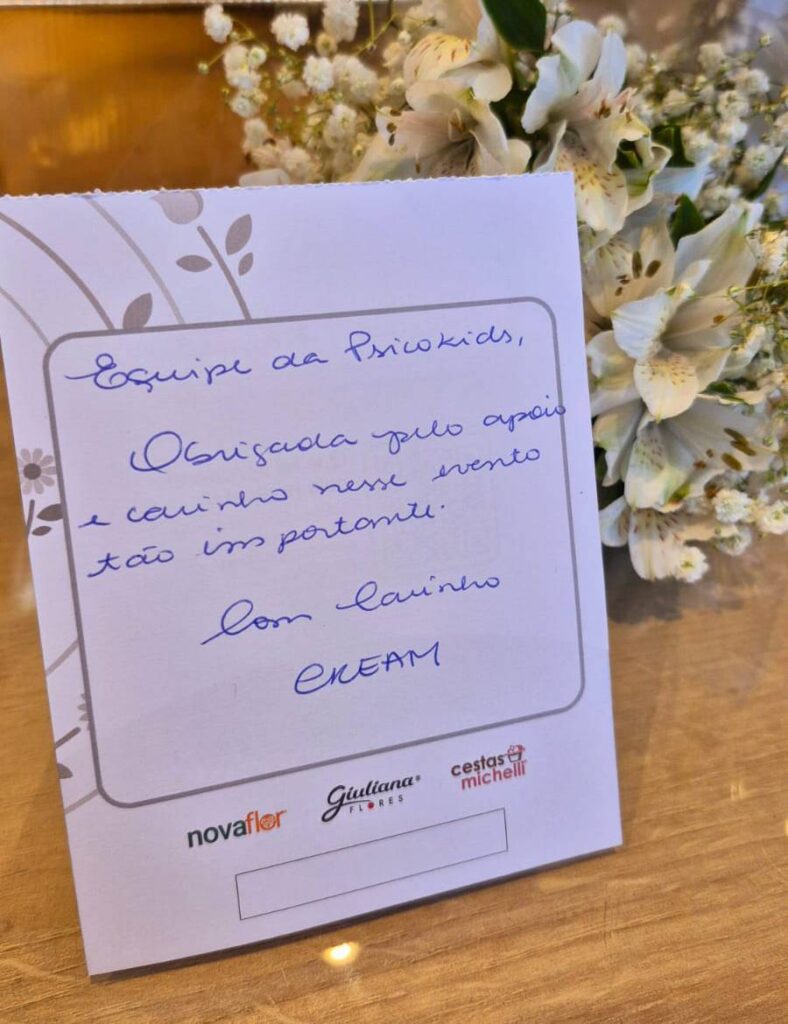 Equipe da Psicokids,
Obrigada pelo apoio
e carinho nesse evento
tão importante.
Com Carinho
CREAM
novaflor
Giuliana®
FLORES
cestas
michelli